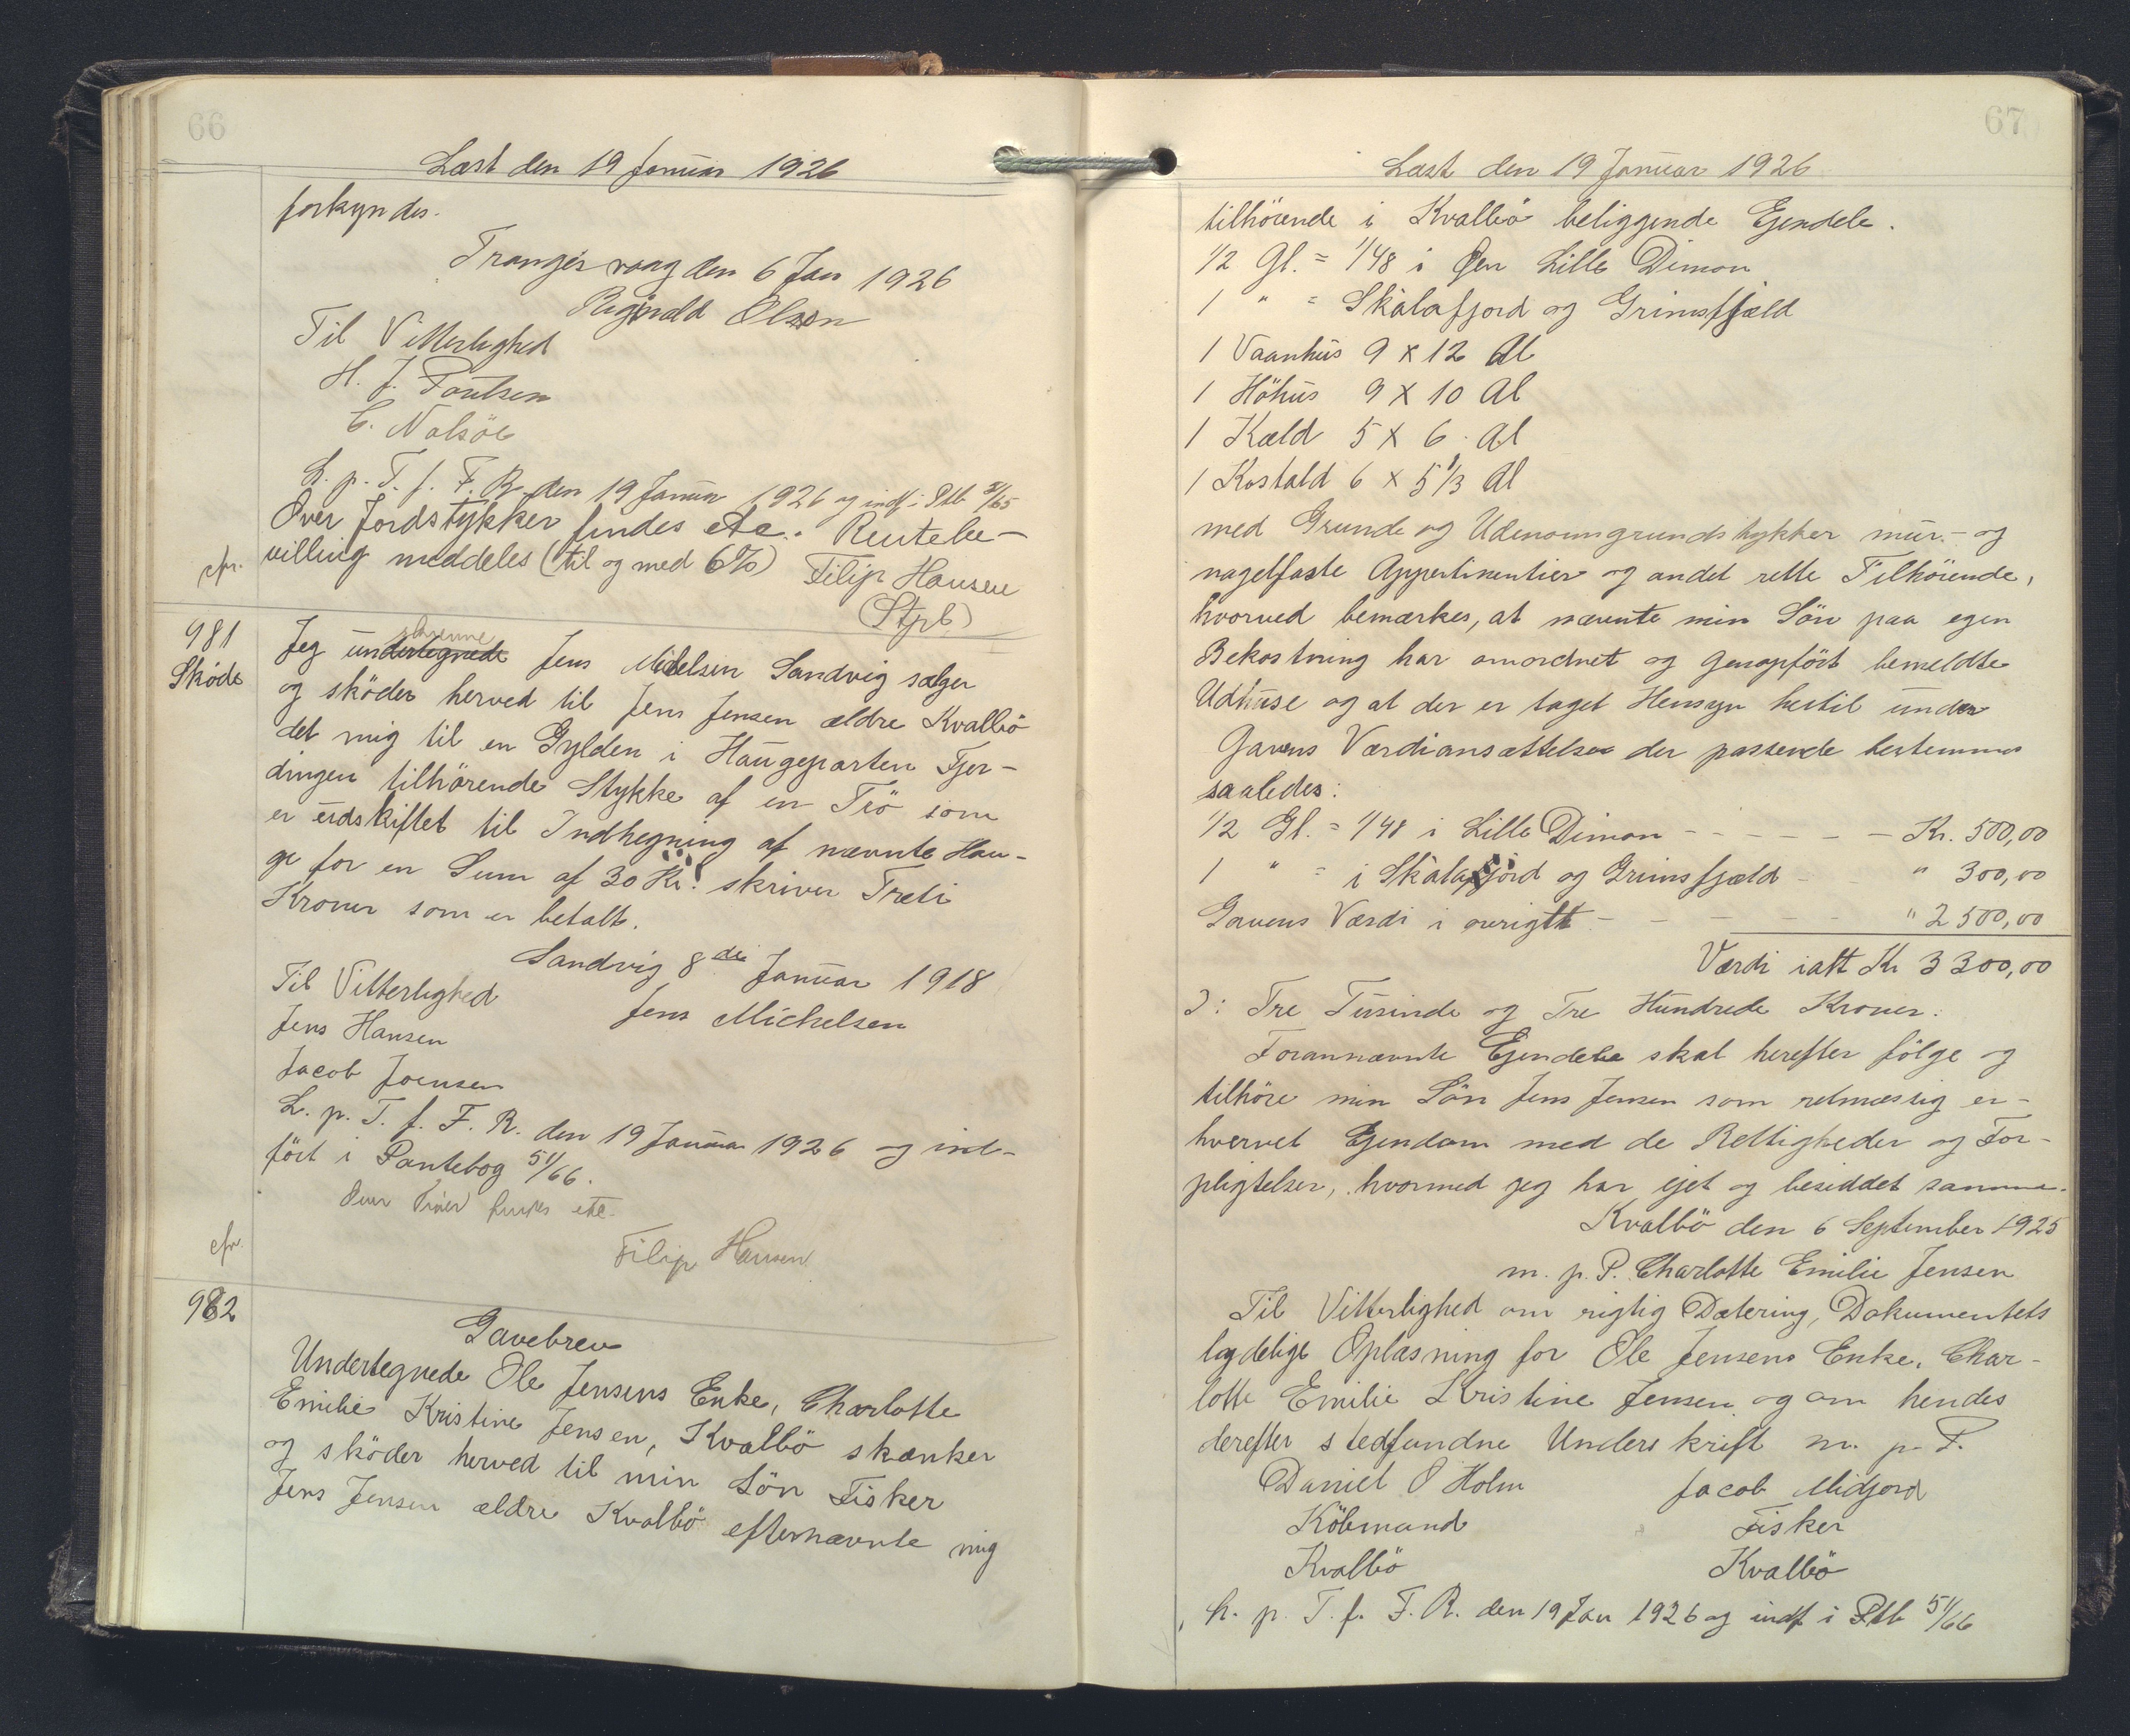 66
Læst den 19 Januar 1926
forkyndes.
Trangisvaag den 6 Jan 1926
Reginald Olsen
Til Vitterlighed
H. J. Poulsen
C. Nolsöe
L. p. T. f. F. R. den 19 Januar 1926 og indf. i Ptb 51/65
Over Jordstykker findes etc. Rentebe-
villing meddeles (til og med 6%)
cfr.
Filip Hansen
(Stpl)
981
Sköde
Jeg undertegnede Jens Mickelsen Sandvig sælger
og sköder herved til Jens Jensen ældre Kvalbö
det mig til en Gylden i Haugeparten Fjer-
dingen tilhörende Stykke af en Trö som
er udskiftet til Indhegning af nævnte Hau-
ge for en Sum af 30 Kr. skriver Treti
Kroner som er betalt.
Sandvig 8de Januar 1918
Jens Michelsen
Til Vitterlighed
Jens Hansen
Jacob Joensen
L. p. T. f. F. R. den 19 Januar 1926 og ind-
fört i Pantebog 51/66.
Over Tröer findes etc.
cfr.
Filip Hansen
982
Gavebrev
Undertegnede Ole Jensens Enke, Charlotte
Emilie Kristine Jensen, Kvalbö skænker
og sköder herved til min Sön Fisker
Jens Jensen ældre Kvalbö efternævnte mig
67
Læst den 19 Januar 1926
tilhörende i Kvalbö beliggende Ejendele.
1/2 Gl. = 1/48 i Öen Lille Dimon
1 " = Skàlafjord og Grimsfjæld
1 Vaanhus 9 x 12 Al
1 Höhus 9 x 10 Al
1 Kæld 5 x 6 Al
1 Kostald 6 x 5 1/3 Al
med Grunde og Udenomsgrundstykker mur- og
nagelfaste Appertinentier og andet rette Tilhörende,
hvorved bemærkes, at nævnte min Sön paa egen
Bekostning har omordnet og genopfört bemeldte
Udhuse og at der er taget Hensyn hertil under
Gavens Værdiansættelse der passende bestemmes
saaledes:
1/2 Gl. = 1/48 i Lille Dimon - - - - - - Kr. 500,00
1 " = i Skàlafjord og Grimsfjæld - - " 300,00
Gavens Værdi i övrigt - - - - - - " 2500,00
Værdi ialt Kr 3300,00
ɔ: Tre Tusinde og Tre Hundrede Kroner.
Forannævnte Ejendele skal herefter fölge og
tilhöre min Sön Jens Jensen som retmæssig er-
hvervet Ejendom med de Rettigheder og For-
pligtelser, hvormed jeg har ejet og besiddet samme.
Kvalbö den 6 September 1925
m. p. P. Charlotte Emilie Jensen
Til Vitterlighed om rigtig Datering, Dokumentets
lydelige Oplæsning for Ole Jensens Enke, Char-
lotte Emilie Kristine Jensen og om hendes
derefter stedfundne Underskrift m. p. P.
Daniel O Holm Jacob Midjord
Köbmand Fisker
Kvalbö Kvalbö
L. p. T. f. F. R. den 19 Jan 1926 og indf i Ptb 51/66